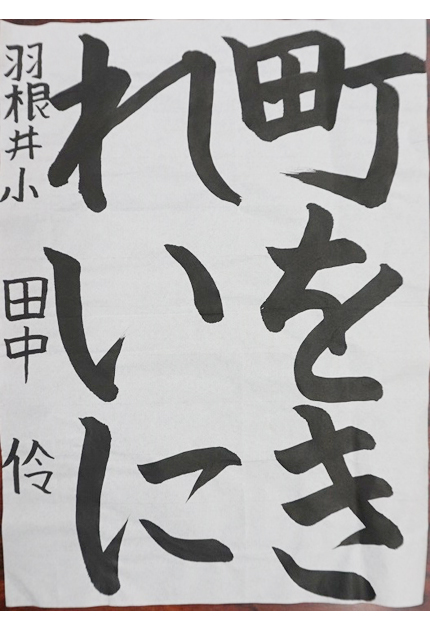 町をき
れいに
羽根井小 田中 伶